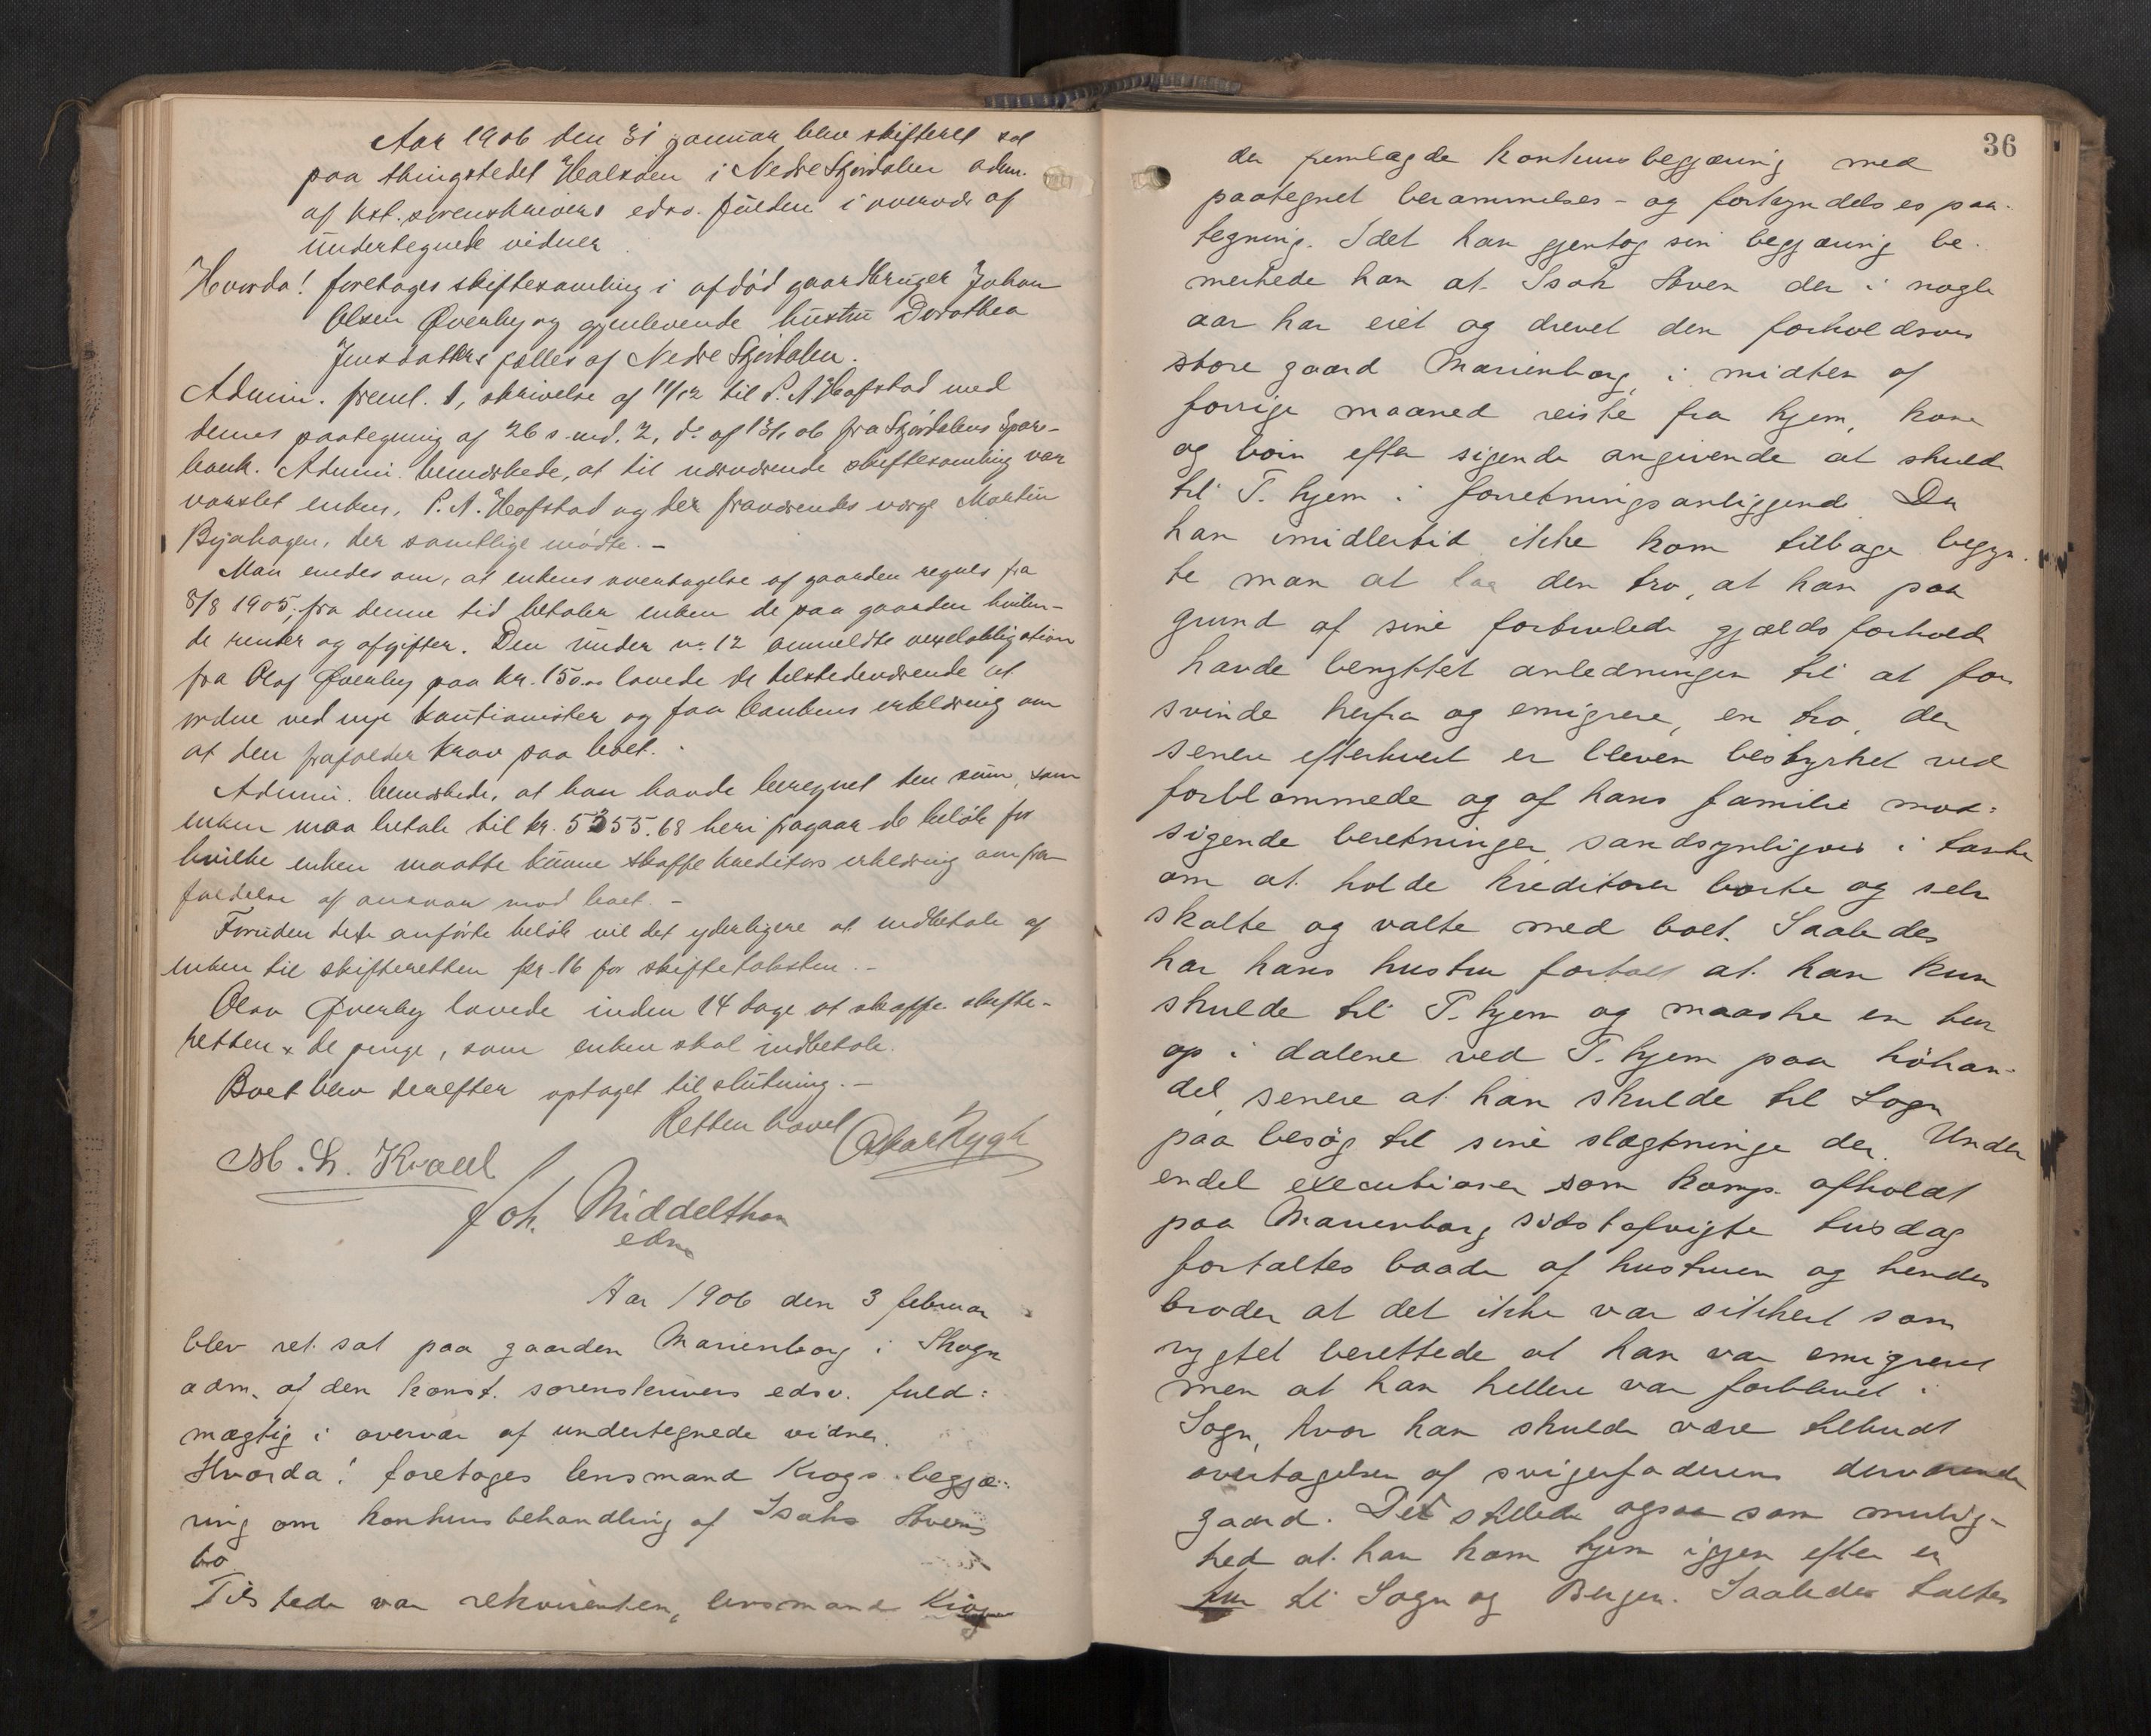 Aar 1906 den 31 januar blev skifteret sat
paa thingstedet Halsöen i Nedre Stjørdalen adm.
af kst. sorenskrivers edsv. fuldm. i overvær af
undertegnede vidner
Hvorda! foretages skiftesamling i afdöd gaardbruger Johan
Olsen Øverby og gjenlevende hustru Dorothea
Jensdatters fælles af Nedre Stjørdalen.
Admin. freml. 1, skrivelse af 11/12 til P. A. Hofstad med
dennes paategning af 26 s. md. 2, do af 13/1 06 fra Stjørdalens Spare-
bank. Admin. bemærkede, at til nærværende skiftesamling var
varslet enken, P. A. Hofstad og den fraværendes værge Martin
Byahagen, der samtlige mödte. -
Man enedes om, at enkens overtagelse af gaarden regnes fra
8/8 1905; fra denne tid betaler enken de paa gaarden hvilen-
de renter og afgifter. Den under no 12 anmeldte vexelobligation
fra Olaf Øverby paa kr. 150.00 lovede de tilstedeværende at
ordne ved nye kautionister og faa bankens erklæring om
at den frafalder krav paa boet. -
Admin. bemærkede, at han havde beregnet den sum, som
enken maa betale til kr. 5355.68 heri fragaar de beløb for
hvilke enken maatte kunne skaffe kreditors erklæring om fra-
faldelse af ansvar mod boet. -
Foruden dette anførte beløb vil det yderligere at indbetale af
enken til skifteretten kr. 16 for skiftetaksten. -
Olav Øverby lovede inden 14 dage at skaffe skifte-
retten de penge, som enken skal indbetale.
Boet blev derefter optaget til slutning. -
Retten hævet Oskar Rygh
M. L. Kvaal
Joh. Middelthon
edsv
Aar 1906 den 3 februar
blev ret sat paa gaarden Marienborg i Skogn
adm. af den konst. sorenskrivers edsv. fuld:
mægtig i overvær af undertegnede vidner.
Hvorda! foretages lensmand Krogs begjæ:
ring om konkursbehandling af Isaks Hovens
bo
Tilstede var rekvirenten, lensmand Krog
36
der fremlagde konkursbegjæring med
paategnet berammelses- og forkyndelsespaa-
tegning. Idet han gjentog sin begjæring be-
merkede han at Isak Hoven der i nogle
aar har eiet og drevet den forholdsvis
store gaard Marienborg, i midten af
forrige maaned reiste fra hjem, kone
og börn efter sigende angivende at skulde
til T.hjem i forretningsanliggende. Da
han imidlertid ikke kom tilbage begyn-
te man at faa den tro, at han paa
grund af sine forkvaklede gjældsforhold
havde benyttet anledningen til at for
svinde herfra og emigrere, en tro, der
senere efterhvert er bleven bestyrket ved
forblommede og af hans familie mod:
sigende beretninger sandsynligvis i tanke
om at holde kreditorer borte og selv
skalte og valte med boet. Saaledes
har hans hustru fortalt at han kun
skulde til T.hjem og maaske en tur
op i dalene ved T.hjem paa höhan-
del, senere at han skulde til Sogn
paa besög til sine slægtninge der. Under
endel executioner som komp. afholdt
paa Marienborg sidstafvigte tirsdag
fortaltes baade af hustruen og hendes
broder at det ikke var sikkert som
rygtet berettede at han var emigreret
men at han hellere var forblevet i
Sogn, hvor han skulde være tilbudt
overtagelsen af svigerfaderens derværende
gaard. Det stillede ogsaa som mulig-
hed at han kom hjem igjen efter en
tur til Sogn og Bergen. Saaledes taltes